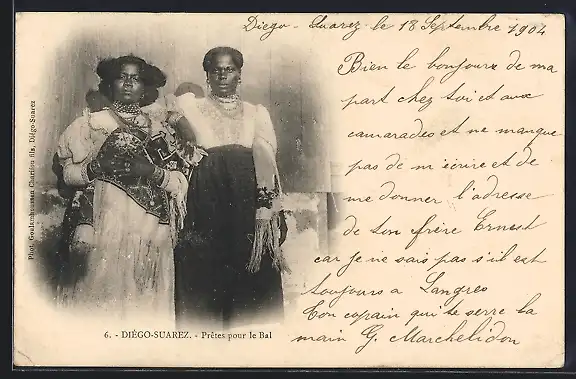 Diego-Suarez le 18 Septembre 1904
Bien le bonjour de ma
part chez toi et aux
camarades et ne manque
pas de m'écrire et de
me donner l'adresse
de ton frère Ernest
car je ne sais pas s'il est
toujours a Langres
Ton copain qui te serre la
main G. Marchelidon
Phot. Charifou fils, Diégo-Suarez
6. - DIÉGO-SUAREZ. - Prêtes pour le Bal